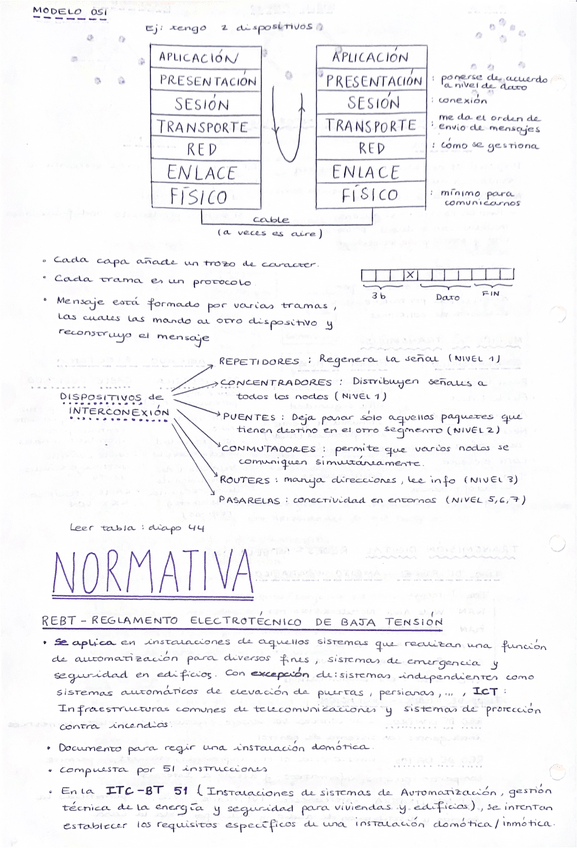 MODELO OSI
Ej: tengo 2 dispositivos
APLICACIÓN
PRESENTACIÓN
SESIÓN
TRANSPORTE
RED
ENLACE
FÍSICO
APLICACIÓN
PRESENTACIÓN : ponerse de acuerdo a nivel de dato
SESIÓN : conexión
TRANSPORTE : me da el orden de envio de mensajes
RED : cómo se gestiona
ENLACE
FÍSICO : mínimo para comunicarnos
cable
(a veces es aire)
• Cada capa añade un trozo de caracter.
• Cada trama es un protocolo
• Mensaje está formado por varias tramas,
las cuales las mando al otro dispositivo y
reconstruyo el mensaje
X
3b Dato FIN
DISPOSITIVOS de
INTERCONEXIÓN
REPETIDORES : Regenera la señal (NIVEL 1)
CONCENTRADORES : Distribuyen señales a
todos los nodos (NIVEL 1)
PUENTES : Deja pasar sólo aquellos paquetes que
tienen destino en el otro segmento (NIVEL 2)
CONMUTADORES : permite que varios nodos se
comuniquen simultáneamente.
ROUTERS : maneja direcciones, lee info (NIVEL 3)
PASARELAS : conectividad en entornos (NIVEL 5,6,7)
Leer tabla : diapo 44
NORMATIVA
REBT - REGLAMENTO ELECTROTÉCNICO DE BAJA TENSIÓN
• Se aplica en instalaciones de aquellos sistemas que realizan una función
de automatización para diversos fines, sistemas de emergencia y
seguridad en edificios. Con excepción de: sistemas independientes como
sistemas automáticos de elevación de puertas, persianas,..., ICT:
Infraestructuras comunes de telecomunicaciones y sistemas de protección
contra incendios
• Documento para regir una instalación domótica.
• Compuesta por 51 instrucciones
• En la ITC-BT 51 (Instalaciones de sistemas de Automatización, gestión
técnica de la energía y seguridad para viviendas y edificios), se intentan
establecer los requisitos específicos de una instalación domótica/inmótica.